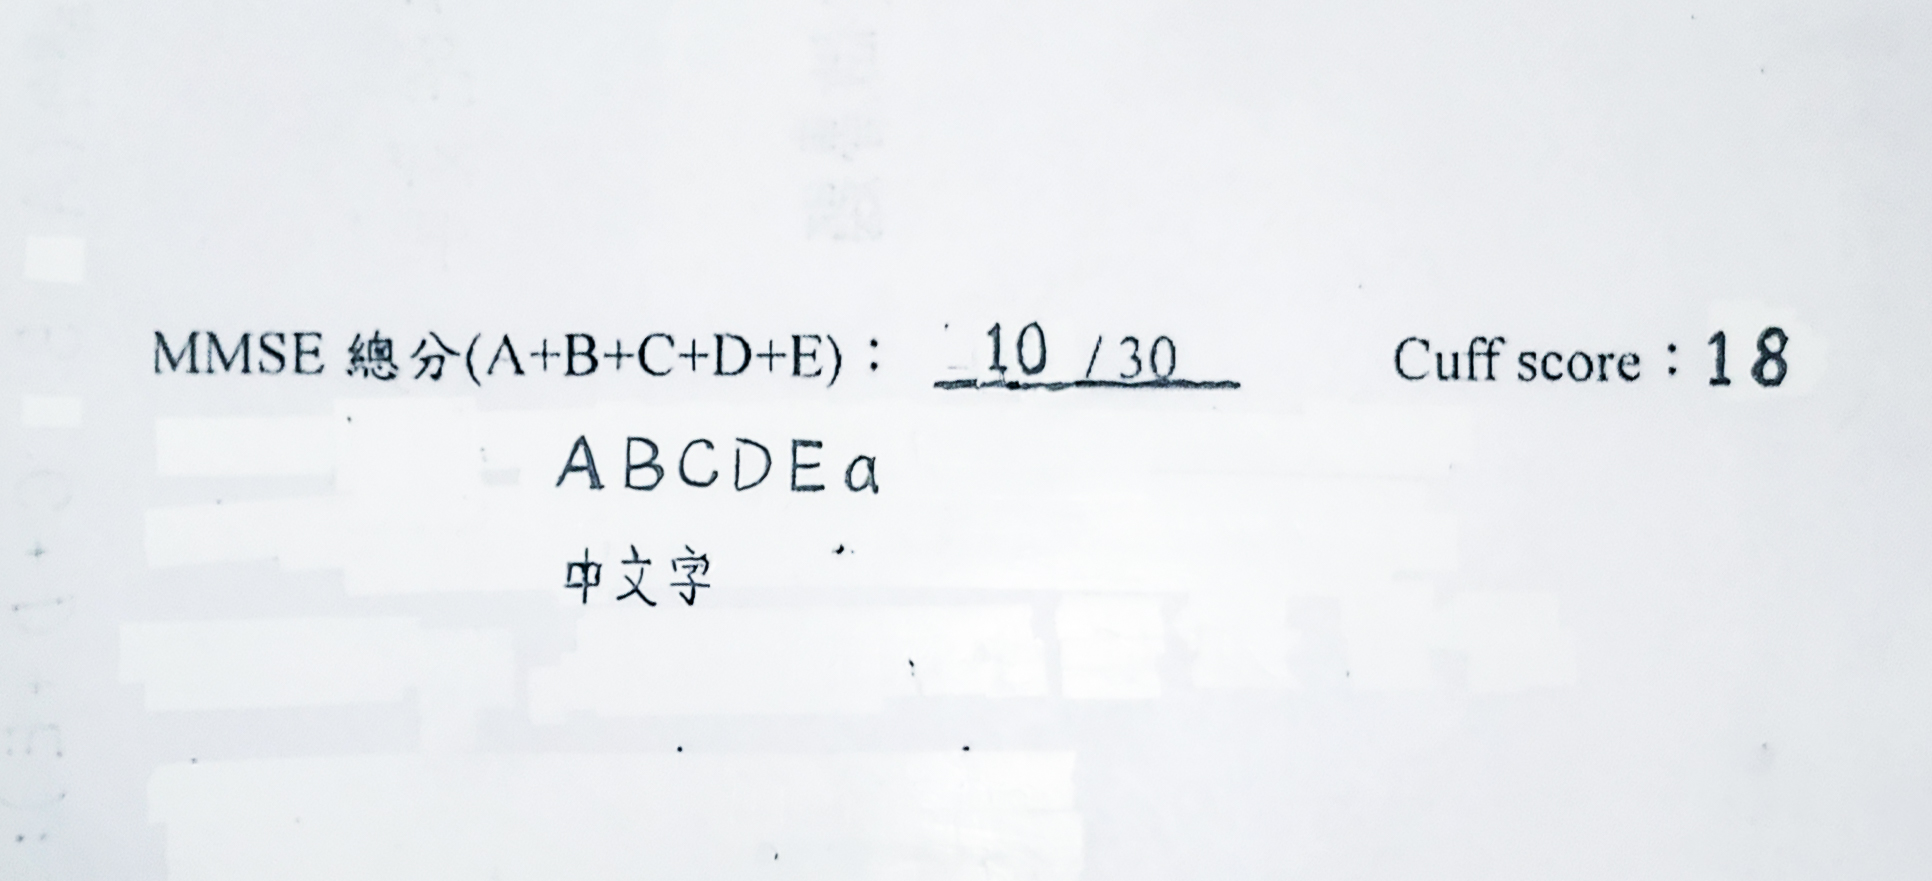 MMSE 總分(A+B+C+D+E)： 10 /30 Cuff score：18
A B C D E a
中文字